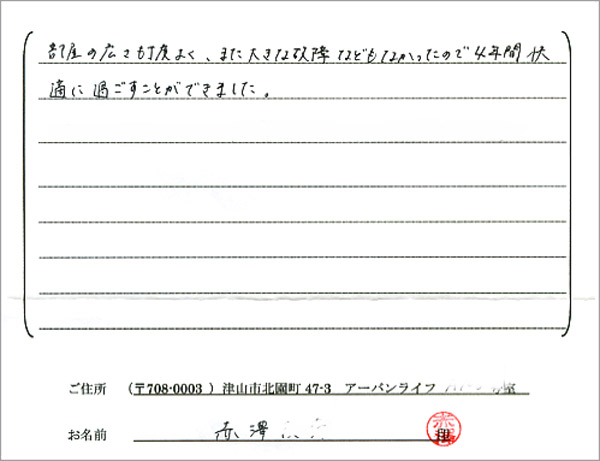 部屋の広さも丁度よく、また大きな故障などもなかったので4年間快
適に過ごすことができました。
ご住所 （〒708-0003 ）津山市北園町 47-3 アーバンライフ 号室
お名前 赤澤
印